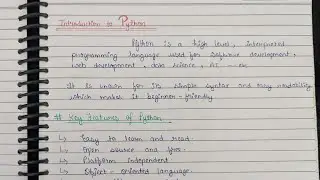 Introduction to Python
Python is a high level, interpreted
programming language used for software development,
web development, data science, AI etc.
It is known for its simple syntax and easy readability
which makes it beginner-friendly
# Key Features of Python
↳ Easy to learn and read.
↳ Open source and free.
↳ Platform independent.
↳ Object-oriented language.